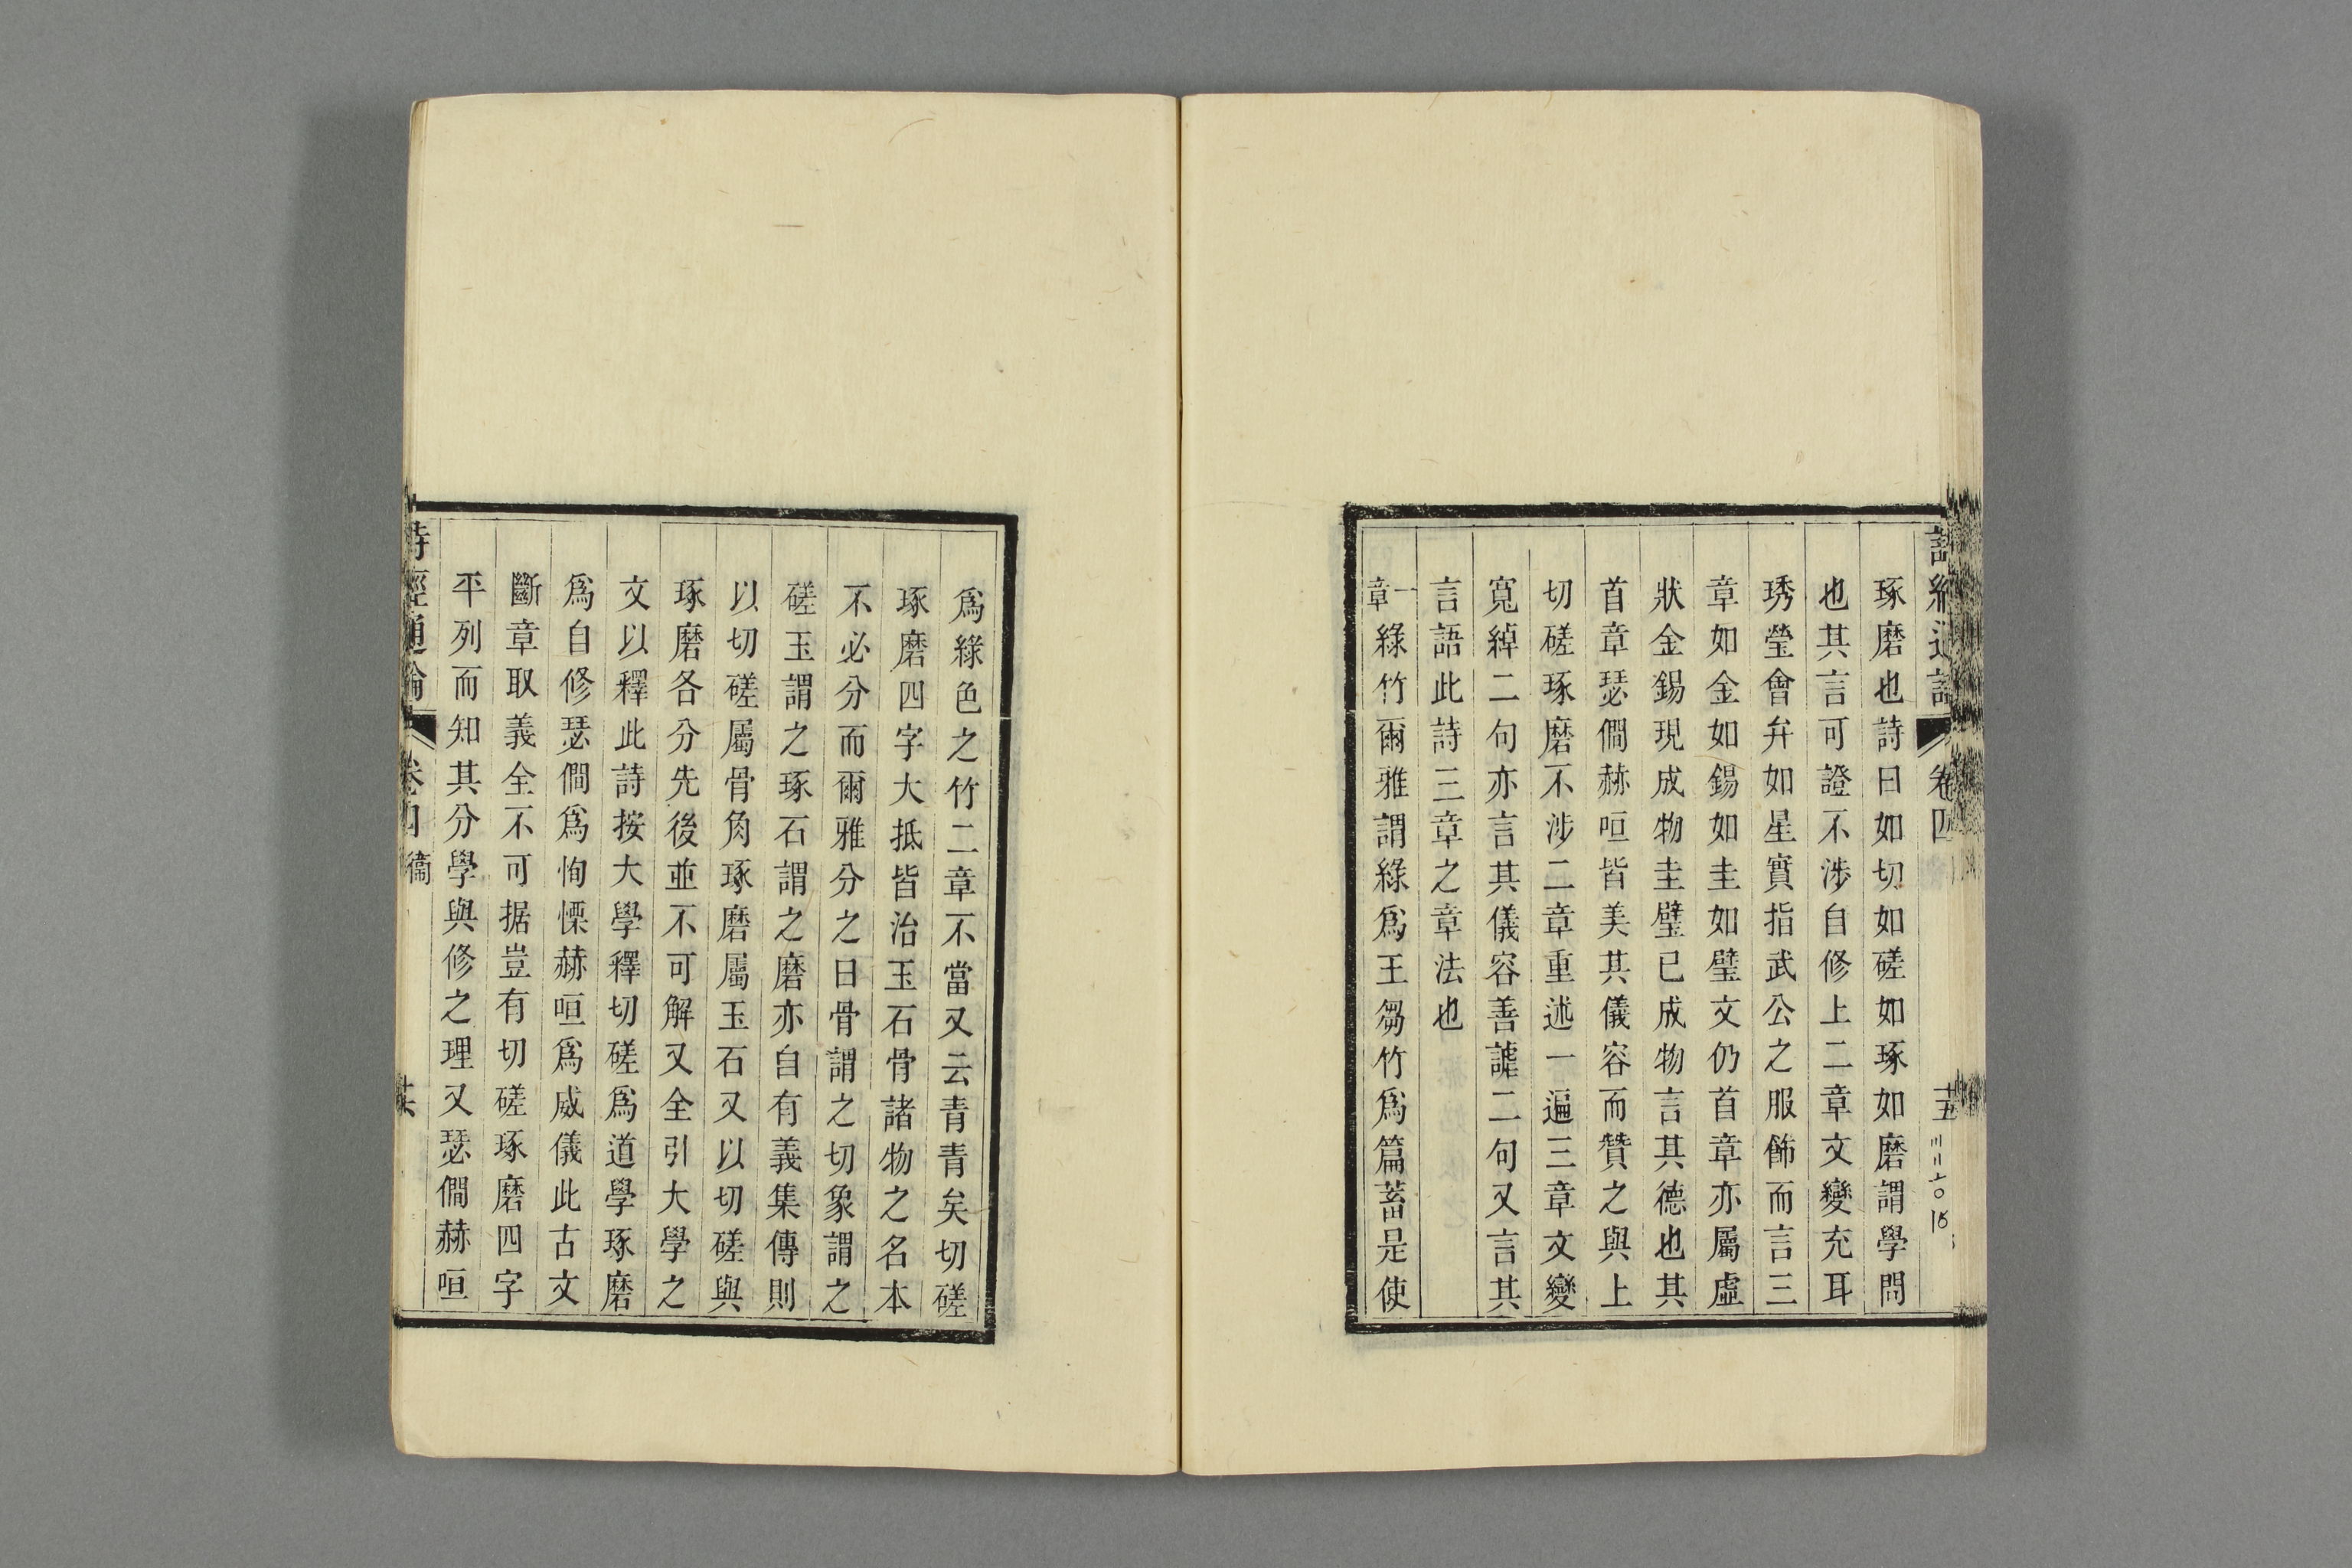 詩經通論 卷四 十五
琢磨也詩曰如切如磋如琢如磨謂學問
也其言可證不涉自修上二章文變充耳
琇瑩會弁如星實指武公之服飾而言三
章如金如錫如圭如璧文仍首章亦屬虛
狀金錫現成物圭璧已成物言其德也其
首章瑟僩赫咺皆美其儀容而贊之與上
切磋琢磨不涉二章重述一遍三章文變
寬綽二句亦言其儀容善謔二句又言其
言語此詩三章之章法也
一章綠竹爾雅謂綠爲王芻竹爲篇蓄是使
爲綠色之竹二章不當又云青青矣切磋
琢磨四字大抵皆治玉石骨諸物之名本
不必分而爾雅分之曰骨謂之切象謂之
磋玉謂之琢石謂之磨亦自有義集傳則
以切磋屬骨角琢磨屬玉石又以切磋與
琢磨各分先後並不可解又全引大學之
文以釋此詩按大學釋切磋爲道學琢磨
爲自修瑟僩爲恂慄赫咺爲威儀此古文
斷章取義全不可据豈有切磋琢磨四字
平列而知其分學與修之理又瑟僩赫咺
詩經通論 卷四 十六